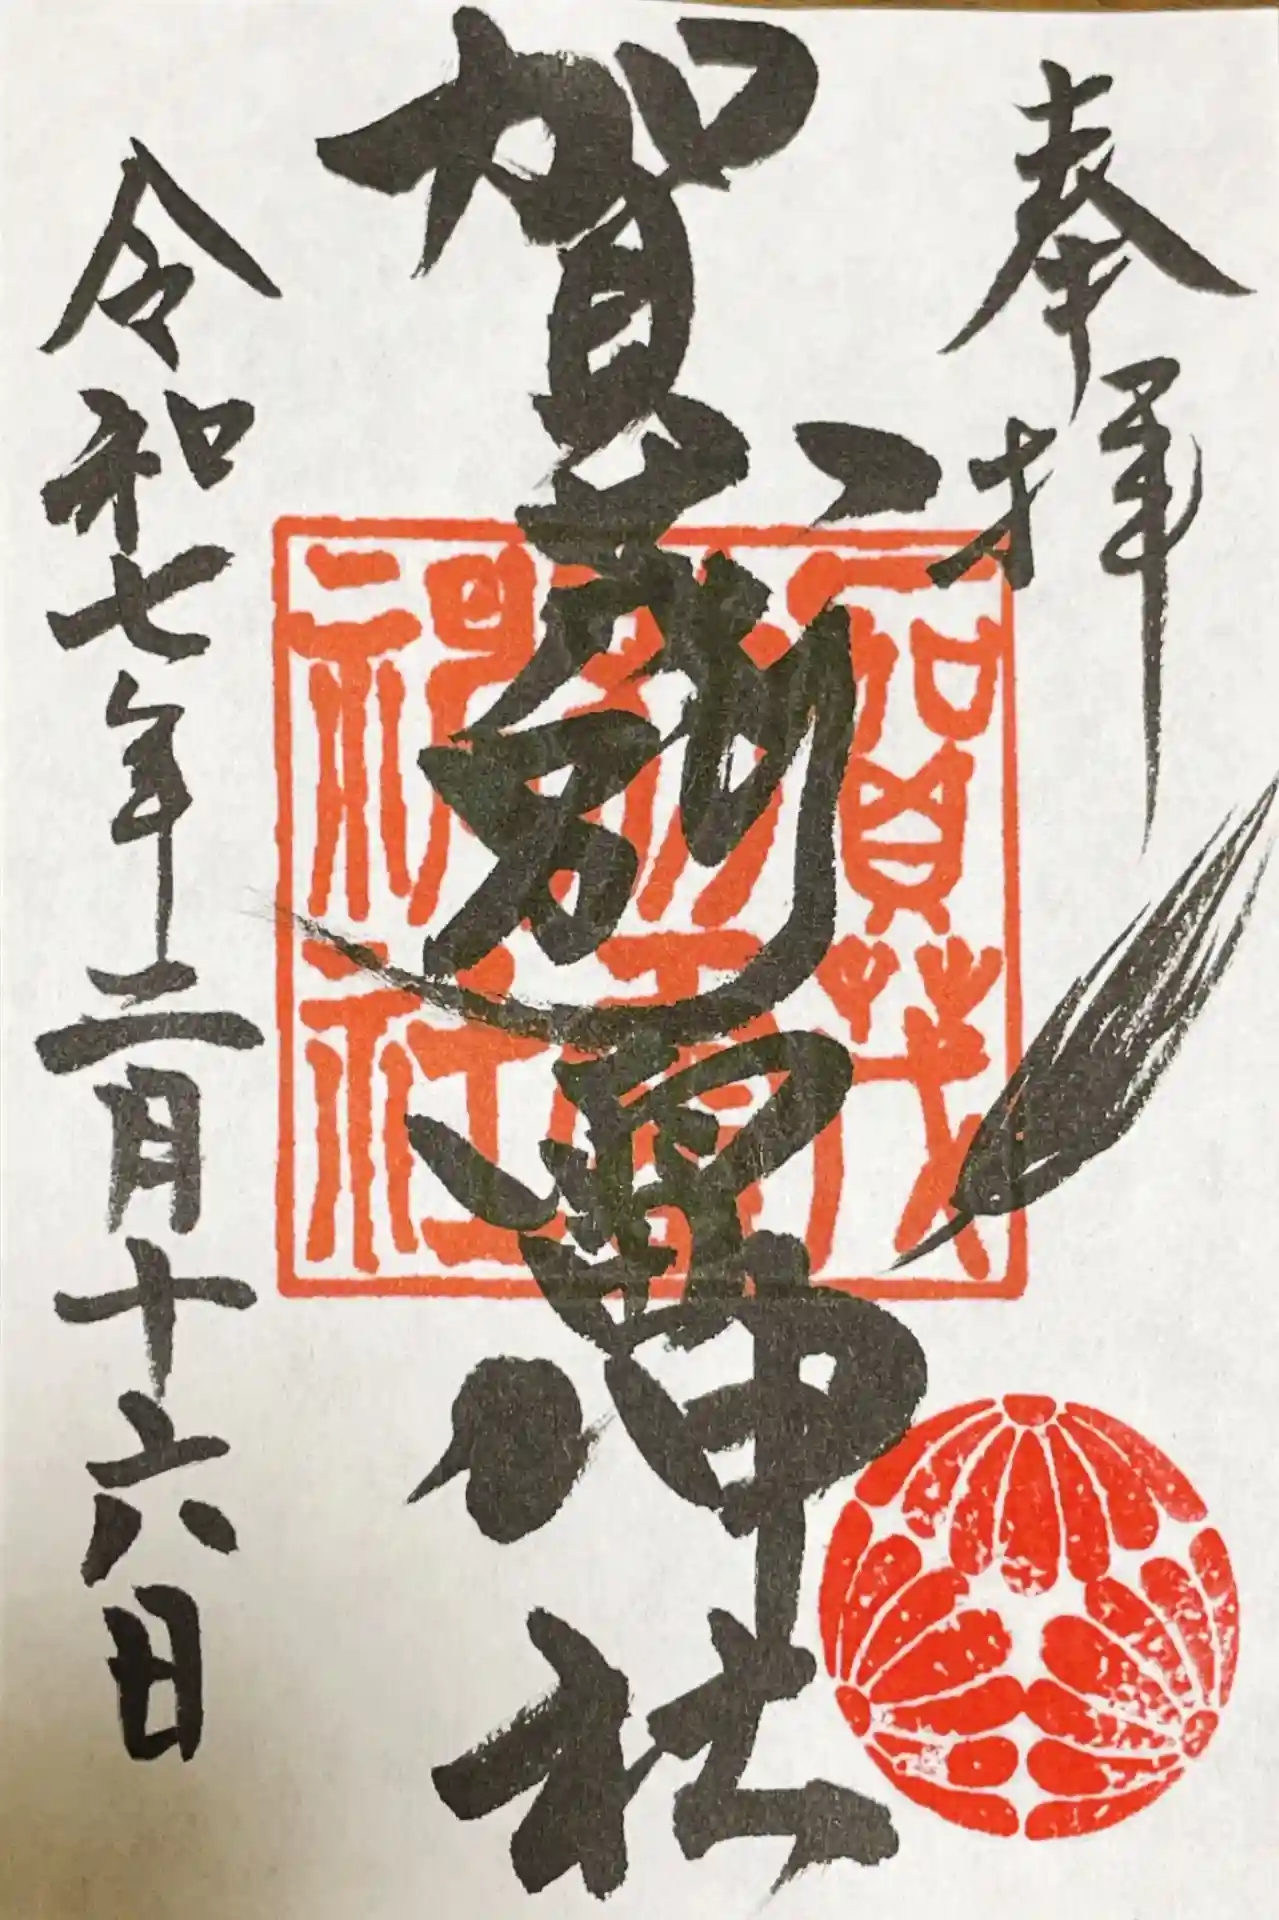 奉拝
賀茂別雷神社
賀茂
別雷
神社
令和七年二月十六日